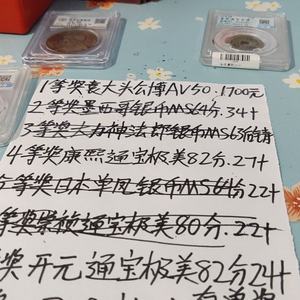 1等奖袁大头公博AV50.1700元
2等奖墨西哥银币MS64分.34+
3等奖大力神法郎银币MS63
4等奖康熙通宝极美82分.27+
等奖日本单瓦银币MS64分22+
等奖崇祯通宝极美80分.22+
奖开元通宝极美82分24+